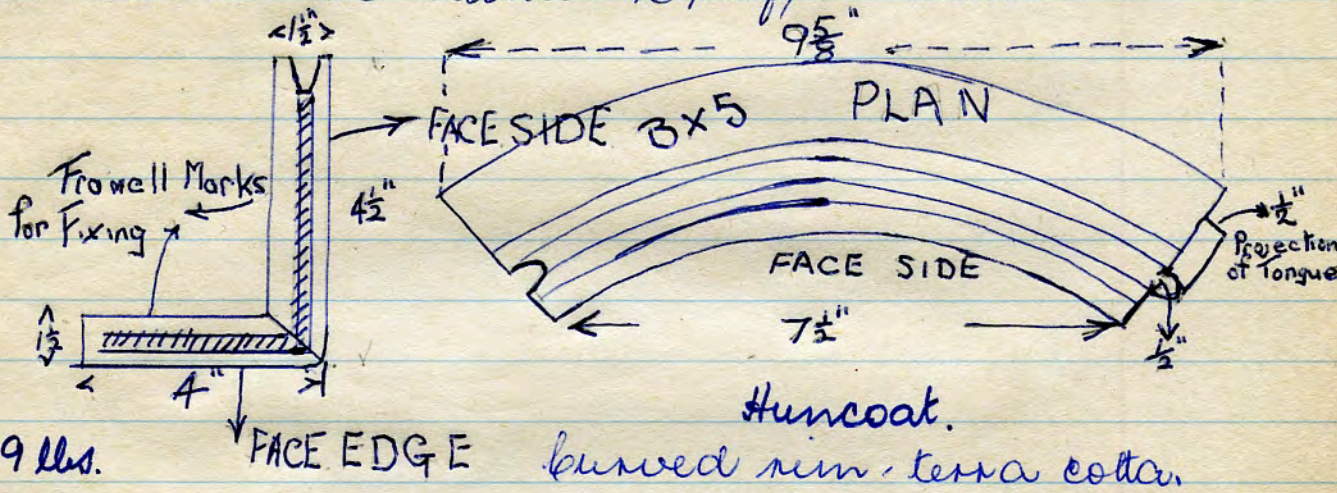 <1½">
9⅝"
PLAN
FACE SIDE B×5
Trowell Marks
for Fixing
4½"
½"
Projection
of Tongue
FACE SIDE
1½
7½"
½"
4"
Huncoat.
9 lbs.
FACE EDGE
Curved rim. terra cotta.